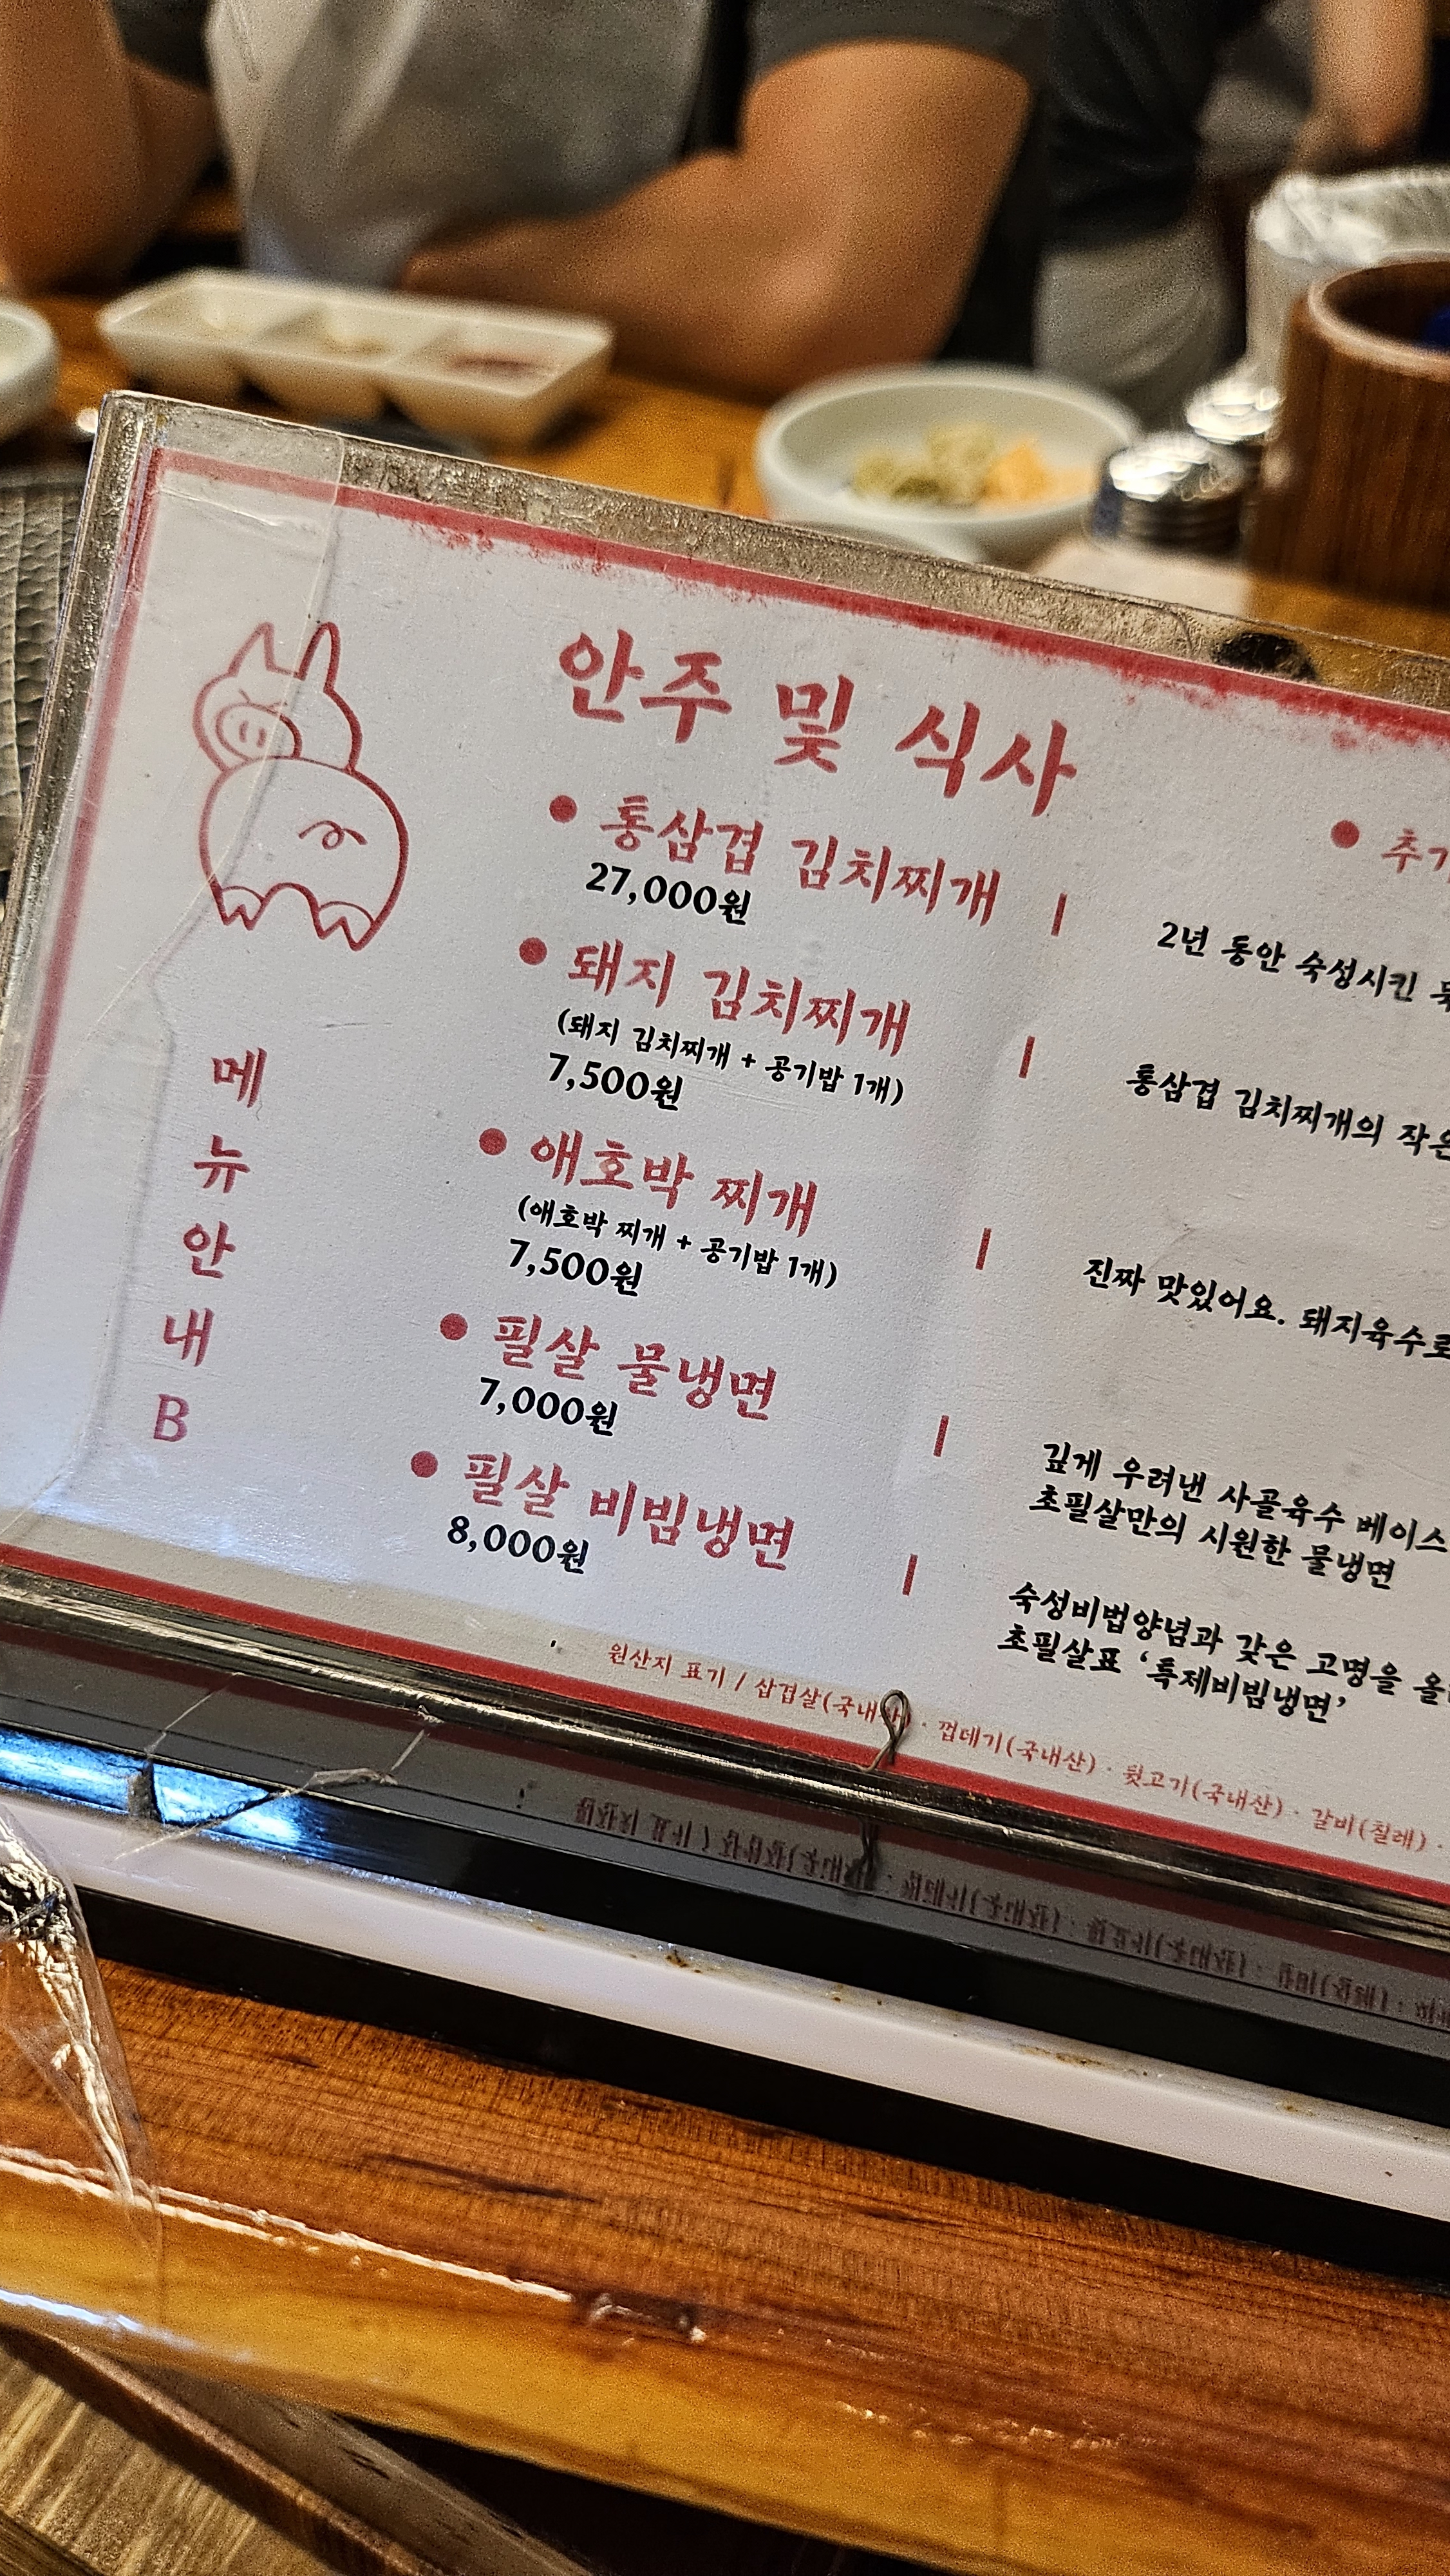 안주 및 식사
• 통삼겹 김치찌개 |
27,000원
• 돼지 김치찌개 |
(돼지 김치찌개 + 공기밥 1개)
7,500원
• 애호박 찌개 |
(애호박 찌개 + 공기밥 1개)
7,500원
• 필살 물냉면 |
7,000원
• 필살 비빔냉면 |
8,000원
•
2년 동안 숙성시킨
통삼겹 김치찌개의 작은
진짜 맛있어요. 돼지육수로
깊게 우려낸 사골육수 베이스
초필살만의 시원한 물냉면
숙성비법양념과 갖은 고명을
초필살표 ‘특제비빔냉면’
메
뉴
안
내
B
원산지 표기 / 삼겹살(국내산) · 껍데기(국내산) · 뒷고기(국내산) · 갈비(칠레) ·